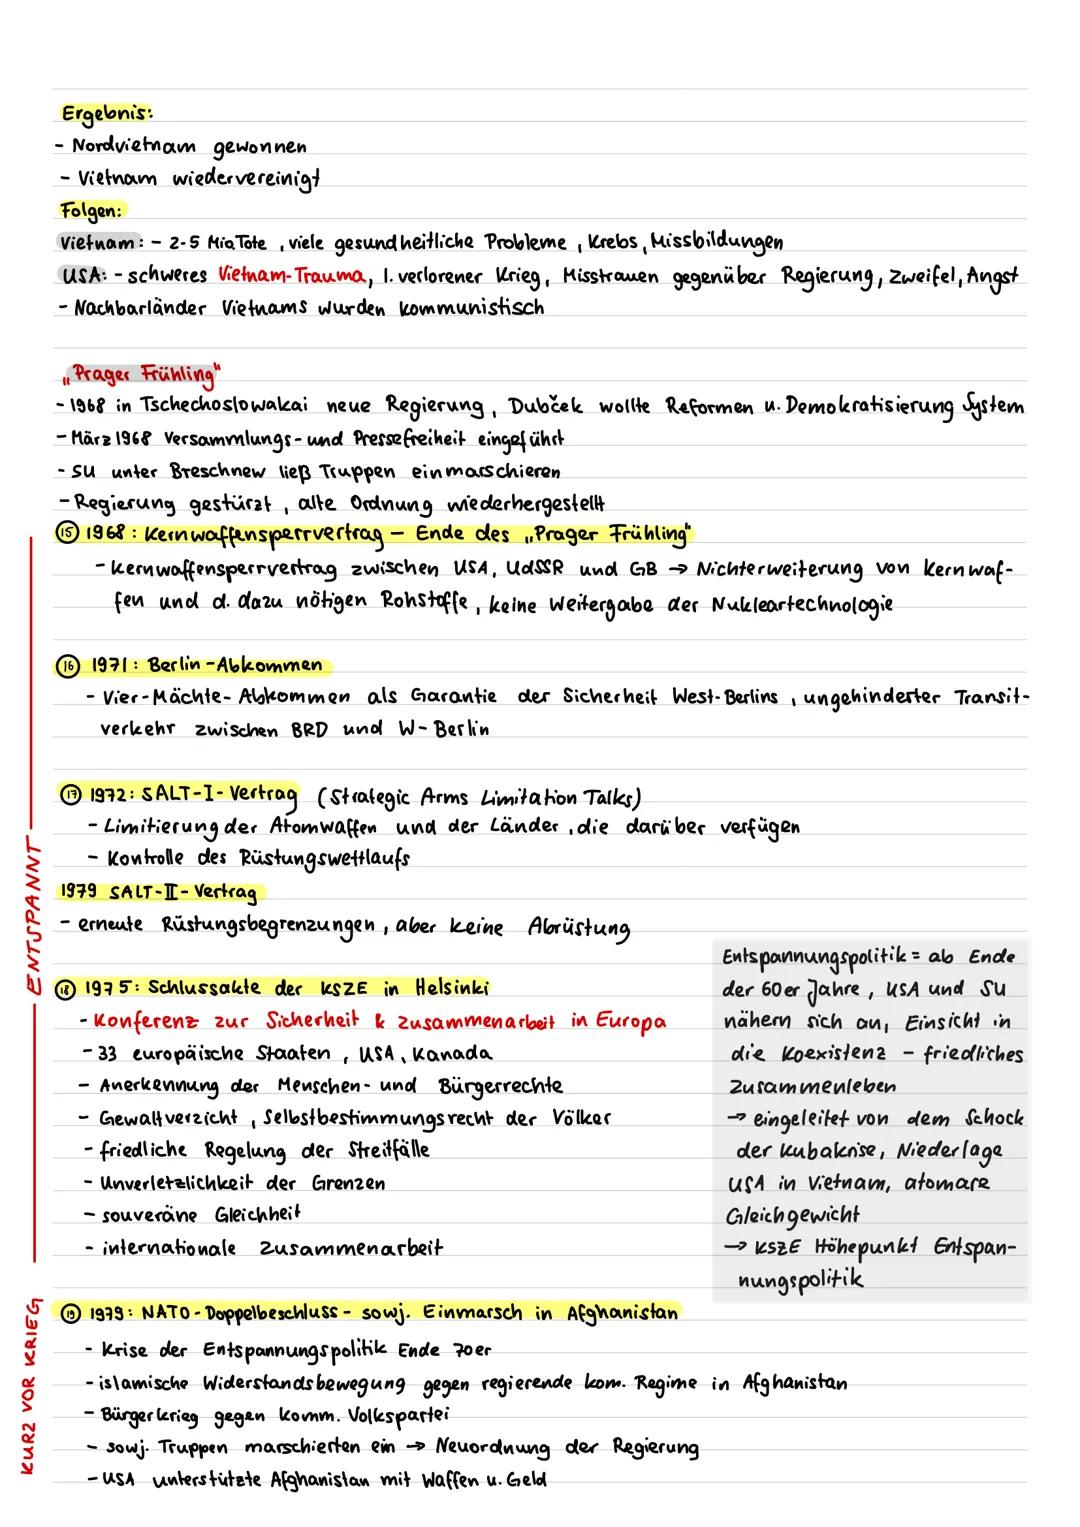 Ergebnis:
- Nordvietnam gewonnen
- Vietnam wiedervereinigt
Folgen:
Vietnam: - 2-5 Mio Tote, viele gesundheitliche Probleme, Krebs, Missbildungen
USA: - schweres Vietnam-Trauma, 1. verlorener Krieg, Misstrauen gegenüber Regierung, Zweifel, Angst
- Nachbarländer Vietnams wurden kommunistisch
„Prager Frühling"
- 1968 in Tschechoslowakai neue Regierung, Dubček wollte Reformen u. Demokratisierung System
- März 1968 Versammlungs- und Pressefreiheit eingeführt
- SU unter Breschnew ließ Truppen einmarschieren
- Regierung gestürzt, alte Ordnung wiederhergestellt
15 1968: Kernwaffensperrvertrag – Ende des „Prager Frühling"
- Kernwaffensperrvertrag zwischen USA, UdSSR und GB → Nichterweiterung von Kernwaf-
fen und d. dazu nötigen Rohstoffe, keine Weitergabe der Nukleartechnologie
16 1971: Berlin-Abkommen
- Vier-Mächte-Abkommen als Garantie der Sicherheit West-Berlins, ungehinderter Transit-
verkehr zwischen BRD und W-Berlin
17 1972: SALT-I-Vertrag (Strategic Arms Limitation Talks)
- Limitierung der Atomwaffen und der Länder, die darüber verfügen
- Kontrolle des Rüstungswettlaufs
1979 SALT-II-Vertrag
- erneute Rüstungsbegrenzungen, aber keine Abrüstung
ENTSPANNT
18 1975: Schlussakte der KSZE in Helsinki
- Konferenz zur Sicherheit & Zusammenarbeit in Europa
- 33 europäische Staaten, USA, Kanada
- Anerkennung der Menschen- und Bürgerrechte
- Gewaltverzicht, Selbstbestimmungsrecht der Völker
- friedliche Regelung der Streitfälle
- Unverletzlichkeit der Grenzen
- souveräne Gleichheit
- internationale Zusammenarbeit
Entspannungspolitik = ab Ende
der 60er Jahre, USA und SU
nähern sich an, Einsicht in
die Koexistenz - friedliches
Zusammenleben
→ eingeleitet von dem Schock
der Kubakrise, Niederlage
USA in Vietnam, atomare
Gleichgewicht
→ KSZE Höhepunkt Entspan-
nungspolitik
KURZ VOR KRIEG
19 1979: NATO-Doppelbeschluss - sowj. Einmarsch in Afghanistan
- Krise der Entspannungspolitik Ende 70er
- islamische Widerstandsbewegung gegen regierende kom. Regime in Afghanistan
- Bürgerkrieg gegen komm. Volkspartei
- sowj. Truppen marschierten ein → Neuordnung der Regierung
- USA unterstützte Afghanistan mit Waffen u. Geld